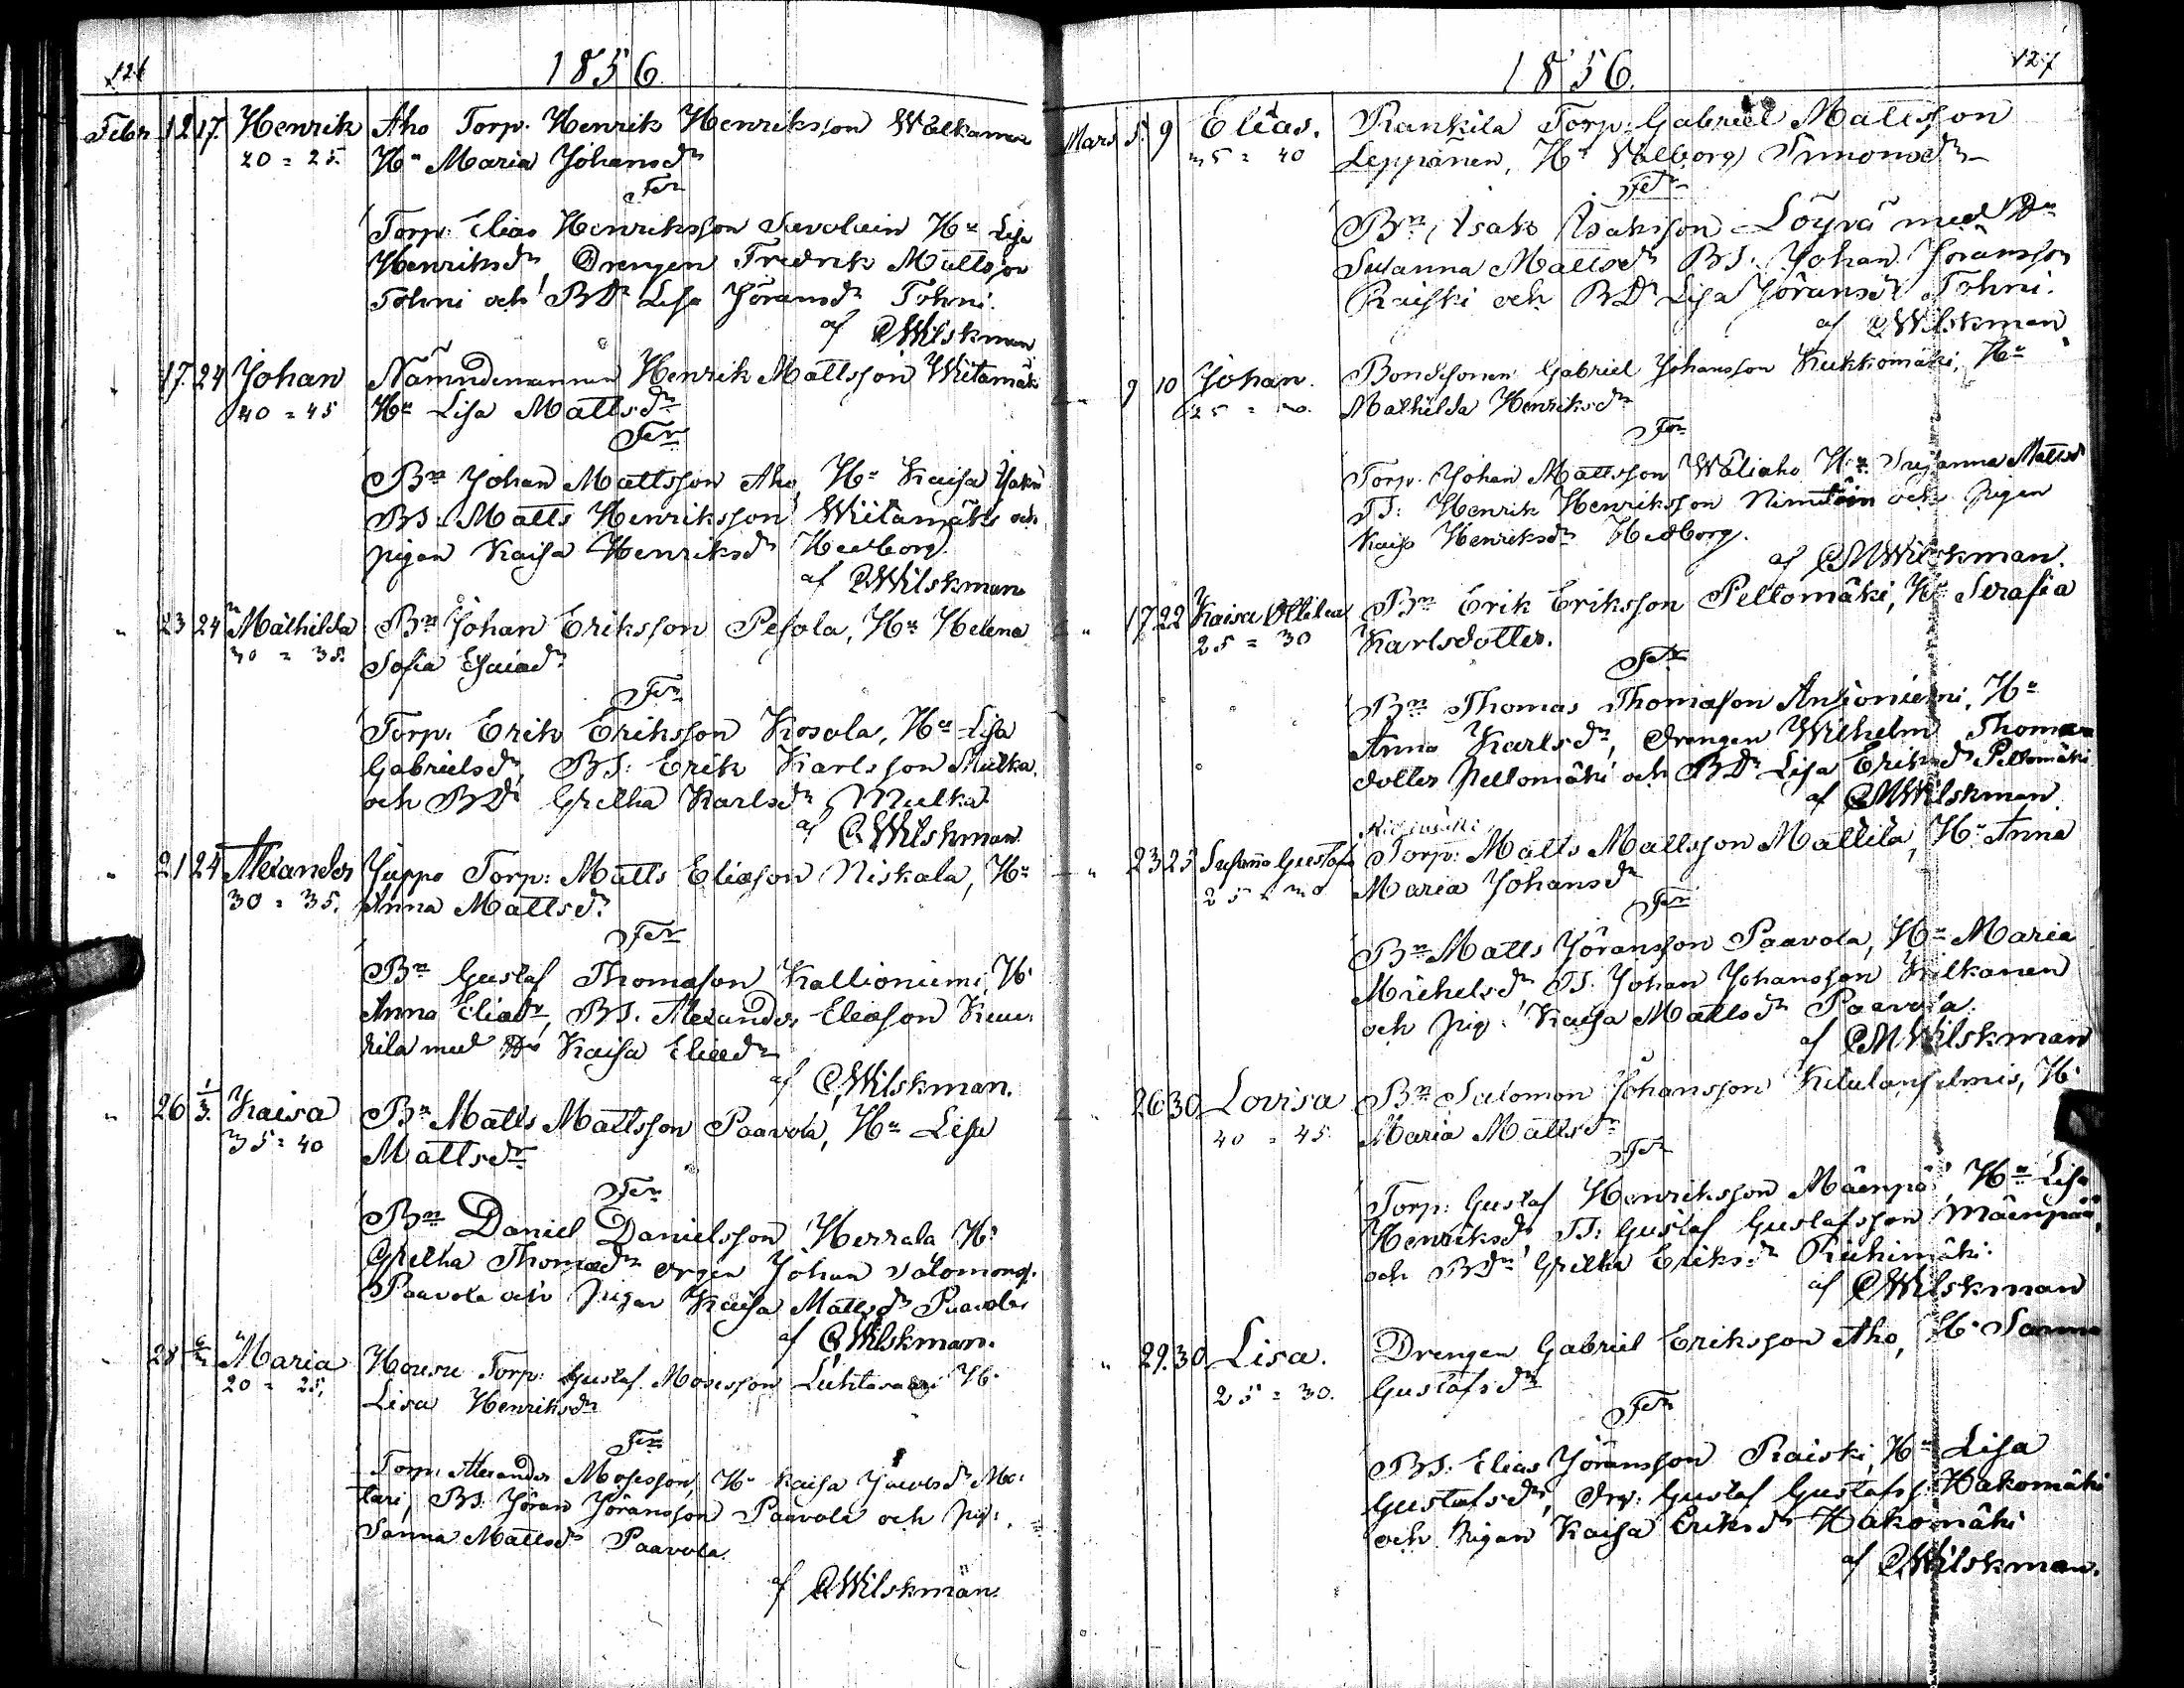 126
1856.
Febr 12 17. Henrik Aho Torp. Henrik Henriksson Walkama
20 = 25. Hu Maria Johansdr
Fdr
Torp. Elias Henriksson Savolain Hu Lisa
Henriksdr, Drengen Fredrik Mattsson
Tohni och BDr Lisa Jöransdr Tohni.
af CWilskman
" 17. 24 Johan Nämndemannen Henrik Mattsson Wiitamäki
40 = 45 Hu Lisa Mattsdr
Fdr
Bn Johan Mattsson Aho, Hu Kaisa
BS. Matts Henriksson Wiitamäki och
pigan Kaisa Henriksdr Hedborg.
af CWilskman
" 23 24 Mathilda Bn Johan Eriksson Pesola, Hu Helena
30 = 35. Sofia Esaiædr
Fdr
Torp. Erik Eriksson Kosola, Hu Lisa
Gabrielsdr, BS: Erik Karlsson Mulka
och BDr Gretha Karlsdr Mulka
af CWilskman
" 21 24 Alexander Juppo Torp: Matts Eliasson Niskala, Hu
30 = 35. Anna Mattsdr
Fdr
Bn Gustaf Thomasson Kallioniemi, Hu
Anna Eliædr, BS. Alexander Eliasson
med Kaisa Eliædr
af CWilskman.
" 26 1/3. Kaisa Bn Matts Mattsson Paavola, Hu Lisa
35 = 40 Mattsdr
Fdr
Bn Daniel Danielsson Herrala Hu
Gretha Thomædr Drgen Johan Salomonss.
Paavola och Pigan Kaisa Mattsdr Paavola
af CWilskman.
28 Maria Houru Torp: Gustaf Mosesson Luhtavaari Hu
20 = 25. Lisa Henriksdr
Fdr
Torp. Alexander Mosesson, Hu Kaisa Jacobsdr
BS. Jöran Jöransson Paavola och Pig:
Sanna Mattsdr Paavola.
af CWilskman.
127
1856.
Mars 5. 9 Elias. Rankila Torp: Gabriel Mattsson
35 = 40 Leppänen, Hu Walborg Simonsdr
Fdr
Bn Isak Isaksson Löyvä med
Susanna Mattsdr BS. Johan Jöransson
Raiski och BDr Lisa Jöransdr Tohni.
af CWilskman
" 9 10 Johan. Bondesonen Gabriel Johansson Kukkomäki, Hu
25 = 30. Mathilda Henriksdr
Fdr
Torp. Johan Mattsson Waliaho Hu Susanna Mattsd
TS: Henrik Henriksson och pigan
Kaisa Henriksdr Hedborg.
af CMWilskman.
" 17 22 Kaisa Ottiliana Bn Erik Eriksson Peltomäki, Hu Serafia
25 = 30 Karlsdotter.
Fdr
Bn Thomas Thomasson Ansioniemi, Hu
Anna Karlsdr, Drengen Wilhelm Thomas
dotter Peltomäki och BDr Lisa Eriksdr Peltomäki
af CMWilskman.
" 23 25 Susanna Gustafa Torp: Matts Mattsson Mattila, Hu Anna
25 = 30 Maria Johansdr
Fdr
Bn Matts Jöransson Paavola, Hu Maria
Michelsdr TS. Johan Johansson Kilkanen
och pig. Kaisa Mattsdr Paavola.
af CMWilskman
" 26 30 Lovisa Bn Salomon Johansson Ketulansalmis, Hu
40 = 45. Maria Mattsdr
Fdr
Torp: Gustaf Henriksson Mäenpää Hu Lisa
Henriksdr TS: Gustaf Gustafsson Mäenpää,
och BDr Gretha Eriksdr Riihimäki.
af CWilskman
" 29. 30 Lisa. Drengen Gabriel Eriksson Aho, Hu Sanna
25 = 30. Gustafsdr
Fdr
BS. Elias Jöransson Raiski, Hu Lisa
Gustafsdr, Drg: Gustaf Gustafss. Hakomäki
och Pigan Kaisa Eriksdr Hakomäki
af CWilskman.